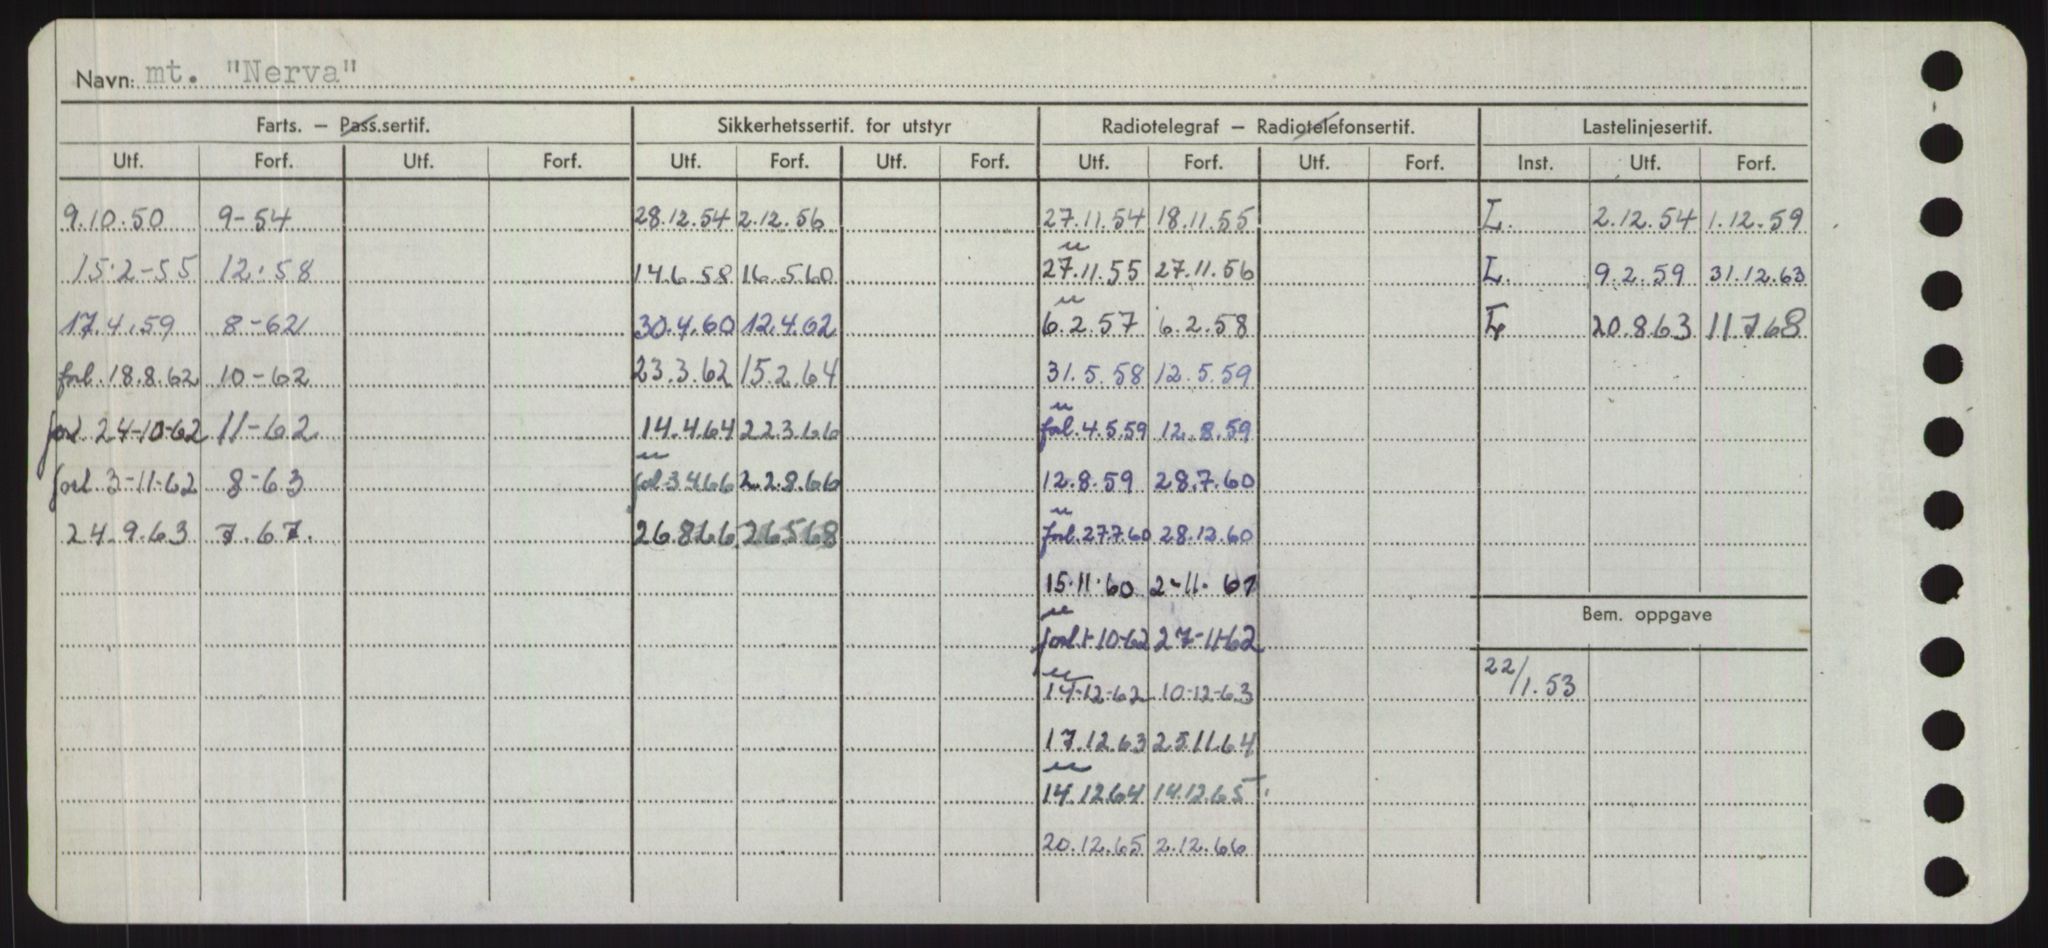 Navn: mt. "Nerva"
Farts. — Pass.sertif. Sikkerhetssertif. for utstyr Radiotelegraf — Radiotelefonsertif. Lastelinjesertif.
Utf. Forf. Utf. Forf. Utf. Forf. Utf. Forf. Utf. Forf. Utf. Forf. Inst. Utf. Forf.
9.10.50 9-54 28.12.54 2.12.56 27.11.54 18.11.55 L. 2.12.54 1.12.59
15.2-55 12.58 14.6.58 16.5.60 27.11.55 27.11.56 L. 9.2.59 31.12.63
17.4.59 8-62 30.4.60 12.4.62 6.2.57 6.2.58 L 20.8.63 11.7.68
forl. 18.8.62 10-62 23.3.62 15.2.64 31.5.58 12.5.59
forl 24-10-62 11-62 14.4.64 22.3.66 forl. 4.5.59 12.8.59
forl 3-11-62 8-63 forl 3.4.66 22.8.66 12.8.59 28.7.60
24.9.63 7.67. 26.8.66 26.5.68 forl. 27.7.60 28.12.60
15.11.60 2-11-61
Bem. oppgave
forl. 1-10-62 27-11-62
22/1.53
14-12-62 10-12-63
17.12.63 25.11.64
14.12.64 14.12.65
20.12.65 2.12.66